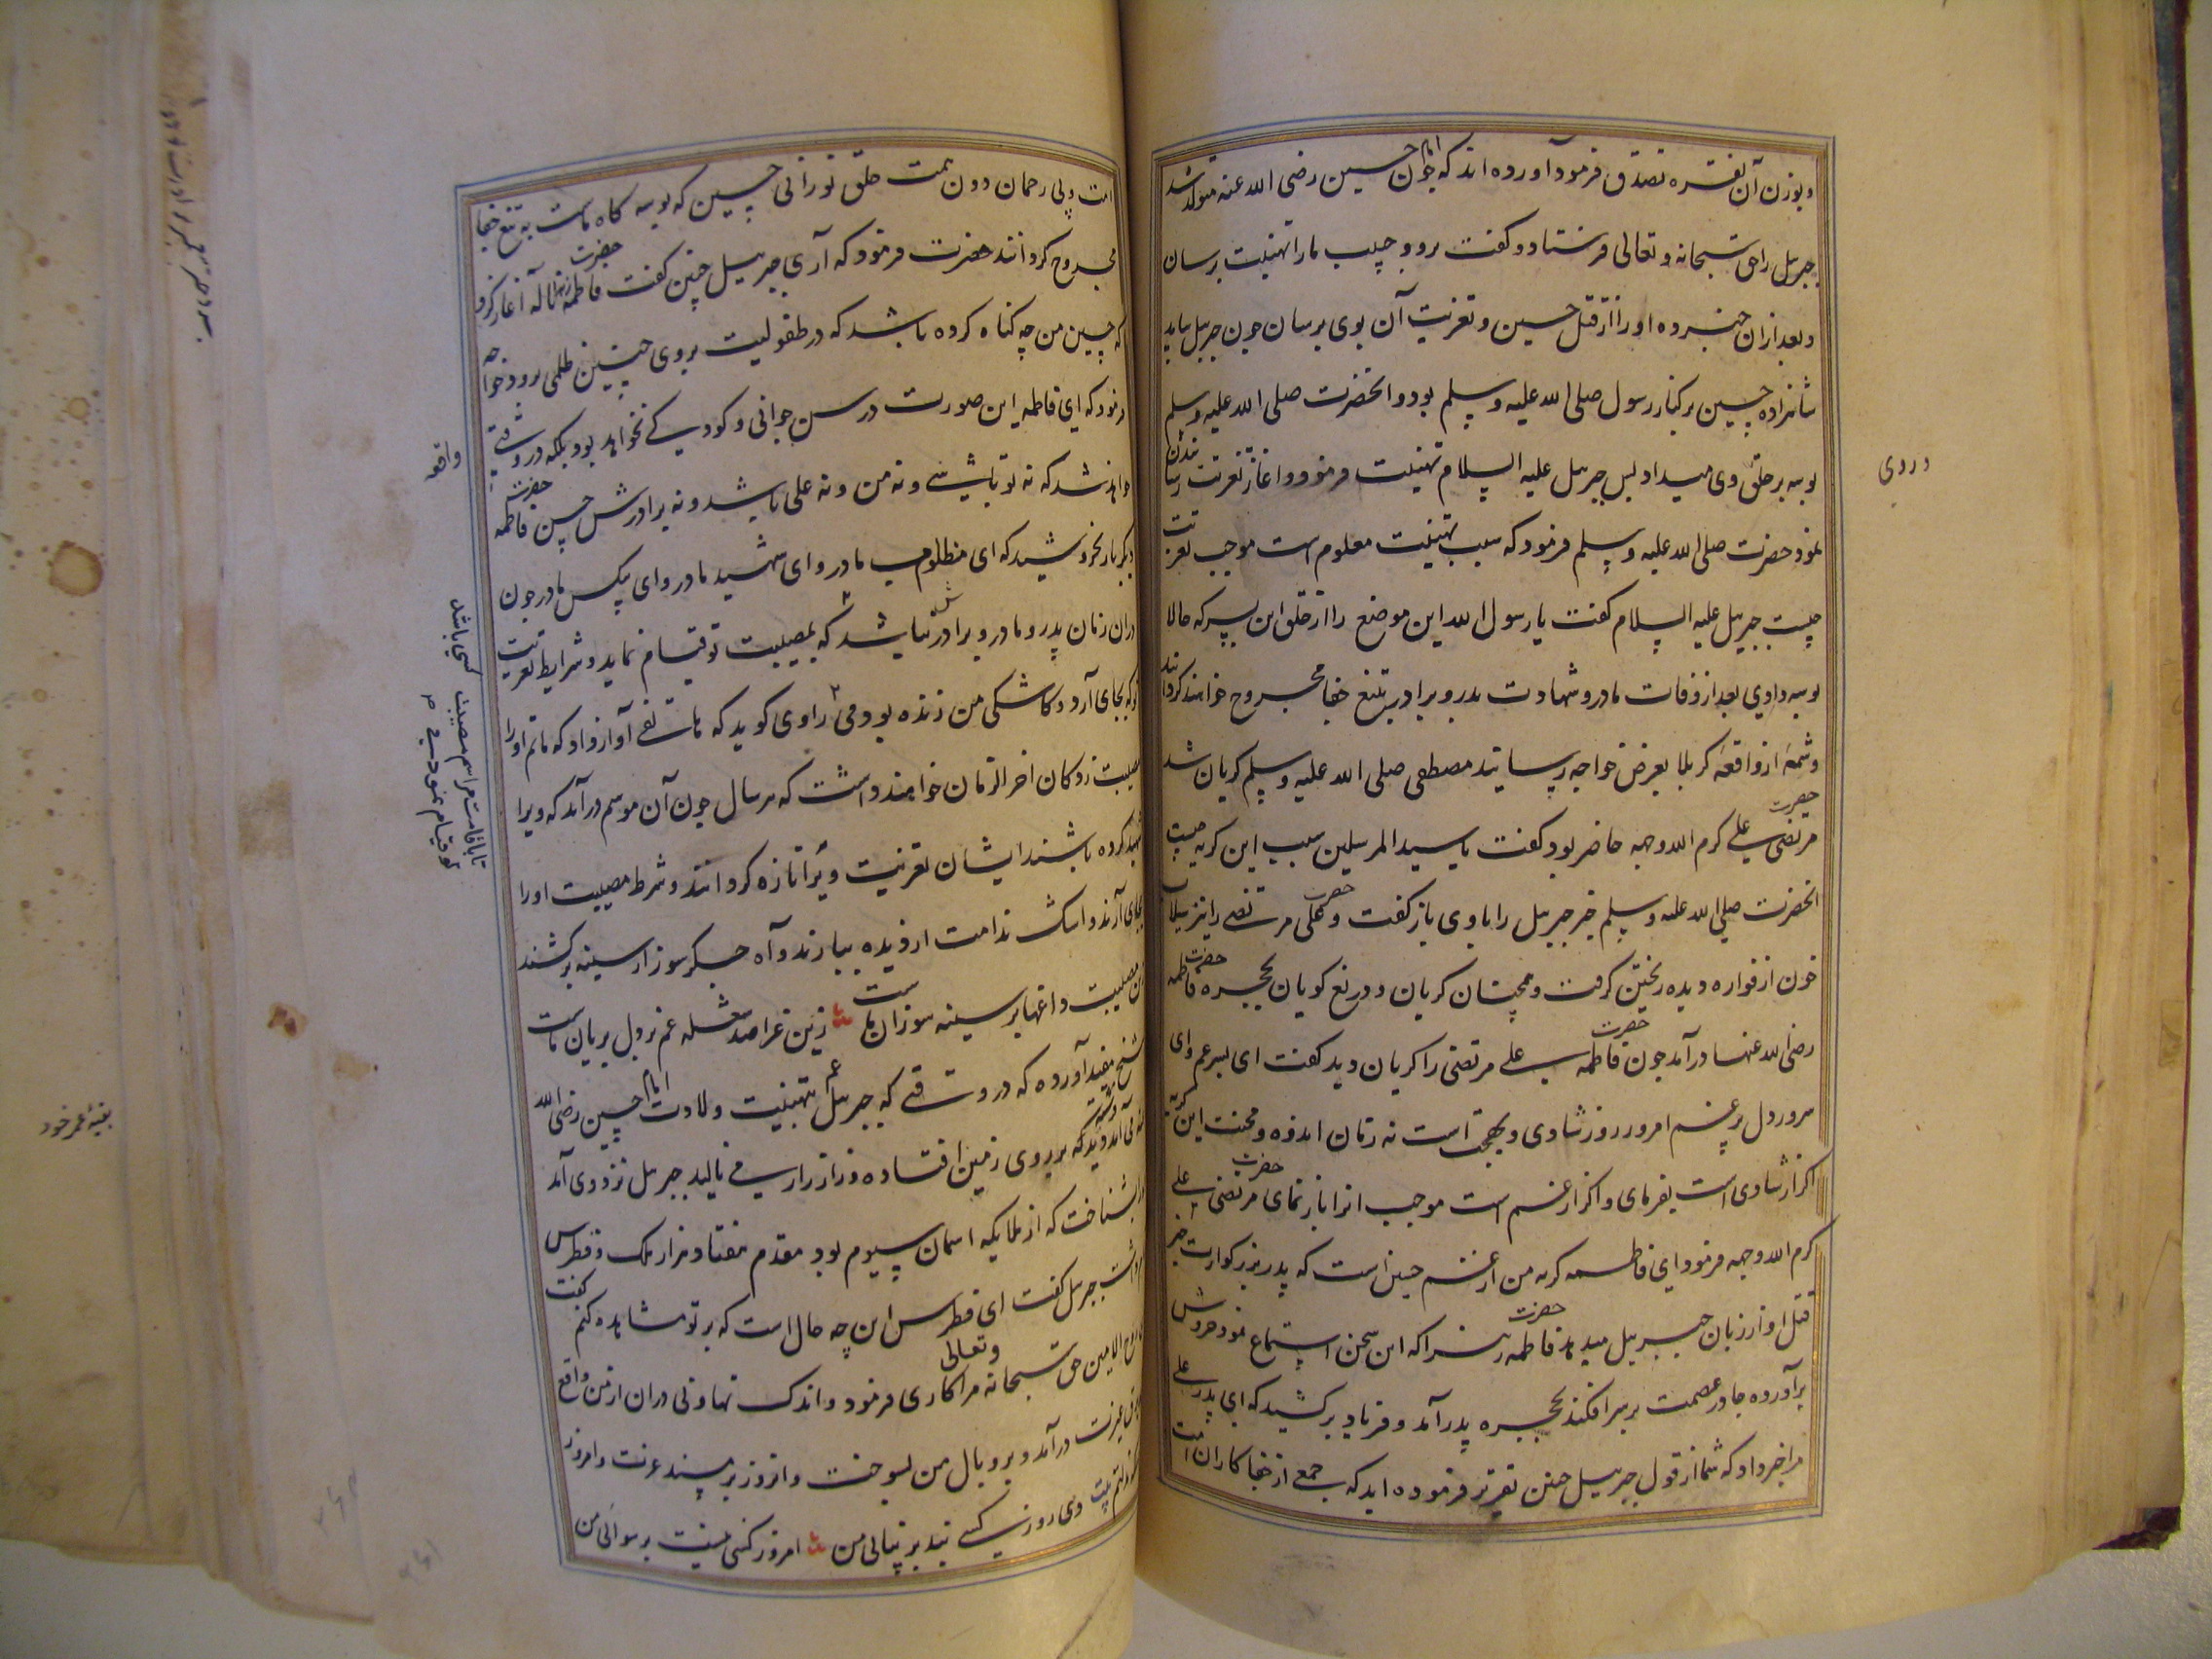 و بوزن آن نقره تصدق فرمود آورده اند که چون امام حسین رضی الله عنه متولد شد
جبرئیل را حق سبحانه و تعالی فرستاد و گفت برو و حبیب ما را تهنیت برسان
و بعد از آن خبر ده او را از قتل حسین و تعزیت آن بوی برسان چون جبرئیل بیامد
شاهزاده حسین بر کنار رسول صلی الله علیه و سلم بود و آنحضرت صلی الله علیه و سلم
بوسه بر حلق وی میداد پس جبرئیل علیه السلام تهنیت فرمود و آغاز تعزیت رسانیدن
نمود حضرت صلی الله علیه و سلم فرمود که سبب تهنیت معلوم است موجب تعزیت
چیست جبرئیل علیه السلام گفت یا رسول الله این موضع را از حلق این پسر که حالا
بوسه دادی بعد از وفات مادر و شهادت پدر و برادر بتیغ جفا مجروح خواهند گردانید
و شمه از واقعه کربلا بعرض خواجه رسانید مصطفی صلی الله علیه و سلم گریان شد
حضرت مرتضی علی کرم الله وجهه حاضر بود گفت یا سید المرسلین سبب این گریه چیست
آنحضرت صلی الله علیه و سلم خبر جبرئیل را با وی باز گفت و حضرت علی مرتضی را نیز سیلاب
خون از فواره دیده ریختن گرفت و همچنان گریان و دریغ گویان بحجره حضرت فاطمه
رضی الله عنها درآمد چون حضرت فاطمه علی مرتضی را گریان دید گفت ای پسر عم و ای
سرور دل پر غم امروز روز شادی و بهجت است نه زمان اندوه و محنت این گریه
اگر از شادی است بفرمای و اگر از غم است موجب آنرا باز نمای حضرت مرتضی علی
کرم الله وجهه فرمود ای فاطمه گریه من از غم حسین است که پدر بزرگوارت خبر
قتل او از زبان جبرئیل میدهد حضرت فاطمه زهرا که این سخن استماع نمود خروش
برآورده چادر عصمت بر سر افکند بحجره پدر آمد و فریاد برکشید که ای پدر علی
مرا خبر داد که شما از قول جبرئیل چنین تقریر فرموده اید که جمعی از جفا کاران امت
در روی
امت و بی رحمان دون همت حلق نورانی حسین که بوسه گاه ماست به تیغ جفا
مجروح گردانند حضرت فرمود که آری جبرئیل چنین گفت حضرت فاطمه زهرا ناله آغاز کرد
که حسین من چه گناه کرده باشد که در طفولیت بر وی چنین ظلمی برود خواجه
فرمود که ای فاطمه این صورت در سن جوانی و کودکی نخواهد بود بلکه در وقتی
خواهد شد که نه تو باشی و نه من و نه علی باشد و نه برادرش حسن حضرت فاطمه
دیگر بار بخروشید که ای مظلوم مادر و ای شهید مادر و ای بیکس مادر چون
در آن زمان پدر و مادر و برادر نباشد که بمصیبت تو قیام نماید و شرایط تعزیت
تو که بجای آرد کاشکی من زنده بودمی راوی گوید که هاتفی آواز داد که ماتم او را
مصیبت زدگان آخر الزمان خواهند داشت که هر سال چون آن موسم درآید که ویرا
شهید کرده باشند ایشان تعزیت ویرا تازه گردانند و شرط مصیبت او را
بجای آرند و اشک ندامت از دیده ببارند و آه جگر سوز از سینه برکشند
مصیبت داغها بر سینه سوزان ماست زین عزا صد شعله غم بر دل بریان ماست
شیخ مفید آورده که در وقتی که جبرئیل بتهنیت ولادت امام حسین رضی الله
دید که بر روی زمین افتاده و زار زار می نالید جبرئیل نزد وی آمد
بشناخت که از ملایکه آسمان سیوم بود مقدم هفتاد هزار ملک و فطرس
جبرئیل گفت ای فطرس این چه حال است که بر تو مشاهده کنم گفت
روح الامین حق سبحانه و تعالی مرا کاری فرمود و اندک تهاونی در آن از من واقع
غیرت درآمد و پر و بال من بسوخت و امروز بر مسند عزت و امروز
دی روز کسی نبد بر تنهائی من امروز کسی نیست برسوائی من
واقعه
کسی باشد
تا باقامت مراسم مصیبت
تو قیام نمودی
بقیه عمر خود